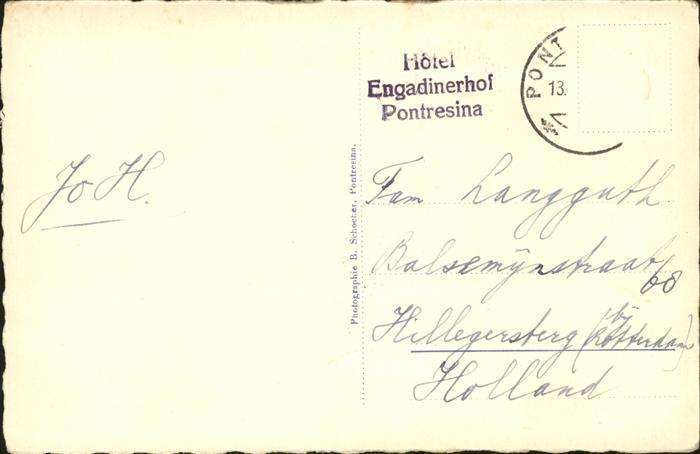 Hôtel
Engadinerhof
Pontresina
PONT
13.
Jo H.
Photographie B. Schocher, Pontresina.
Fam Langguth
Balsemijnstraat
68
Hillegersberg (bij Rotterdam)
Holland